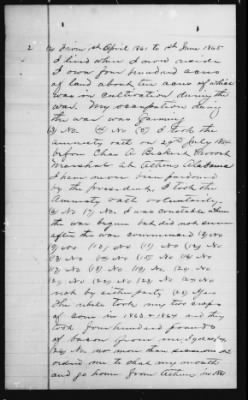 2 (2) From 1st April 1861 to 1st June 1865
I lived where I now reside
I own four hundred acres
of land about ten acres of which
was in cultivation during the
war. My occupation during
the war was farming
(3) No. (4) No (5) I took the
amnesty oath on 29th July 1865
before Chas A. Provost
Marshal at Athens Alabama
I have never been pardoned
by the president, I took the
Amnesty oath voluntarily
(6) No (7) No. I was constable when
the war begun but did not serve
after the war commenced (8) No
(9) No (10) No (11) No (12) No
(13) No (14) No (15) No (16) No
(17) No (18) No (19) No (20) No
(21) No (22) No (23) No (24) No
by either party (25) Yes
the rebels took my two crops
of corn in 1863 & 1864 and they
took four hundred pounds
of bacon from me
(26) No no more than
ordered me to shut my mouth
and go home from Athens in 1861